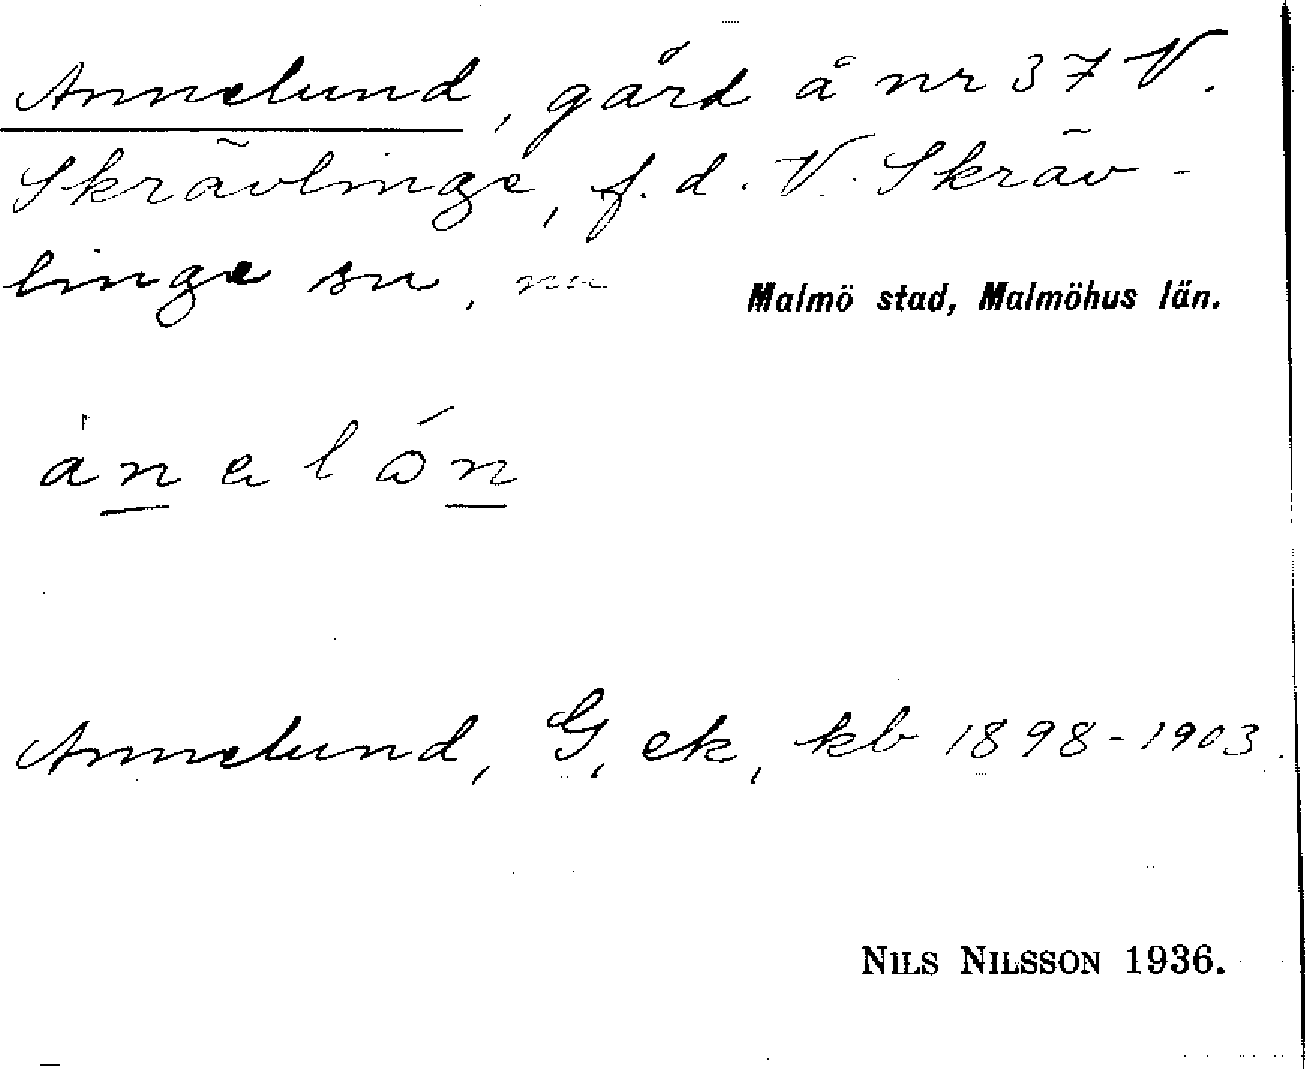 Annelund, gård å nr 37 V.
Skrävlinge, f.d. V. Skräv-
linge sn, nu Malmö stad, Malmöhus län.
ànelón
Annelund, G, ek, kb 1898-1903.
NILS NILSSON 1936.